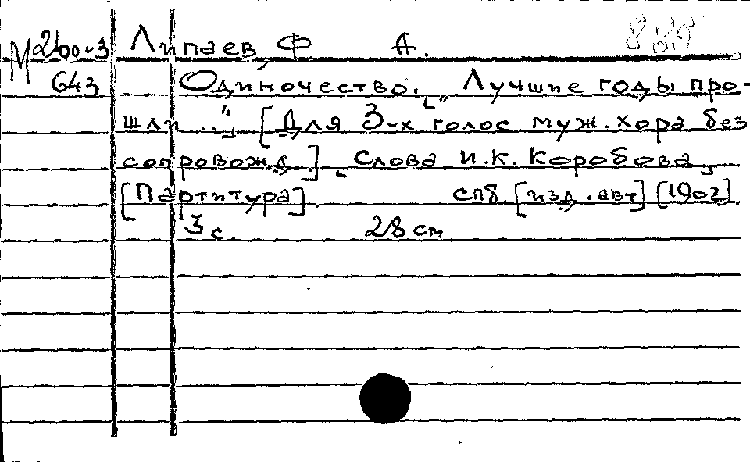 М 260-3 Липаев, Ф. А.
643 Одиночество. „Лучшие годы про-
шли..." [Для 3-х голос муж. хора без
сопровожд.] Слова И.К. Коробова.
[Партитура] СПб [изд. авт] [1902].
3 с. 28 см